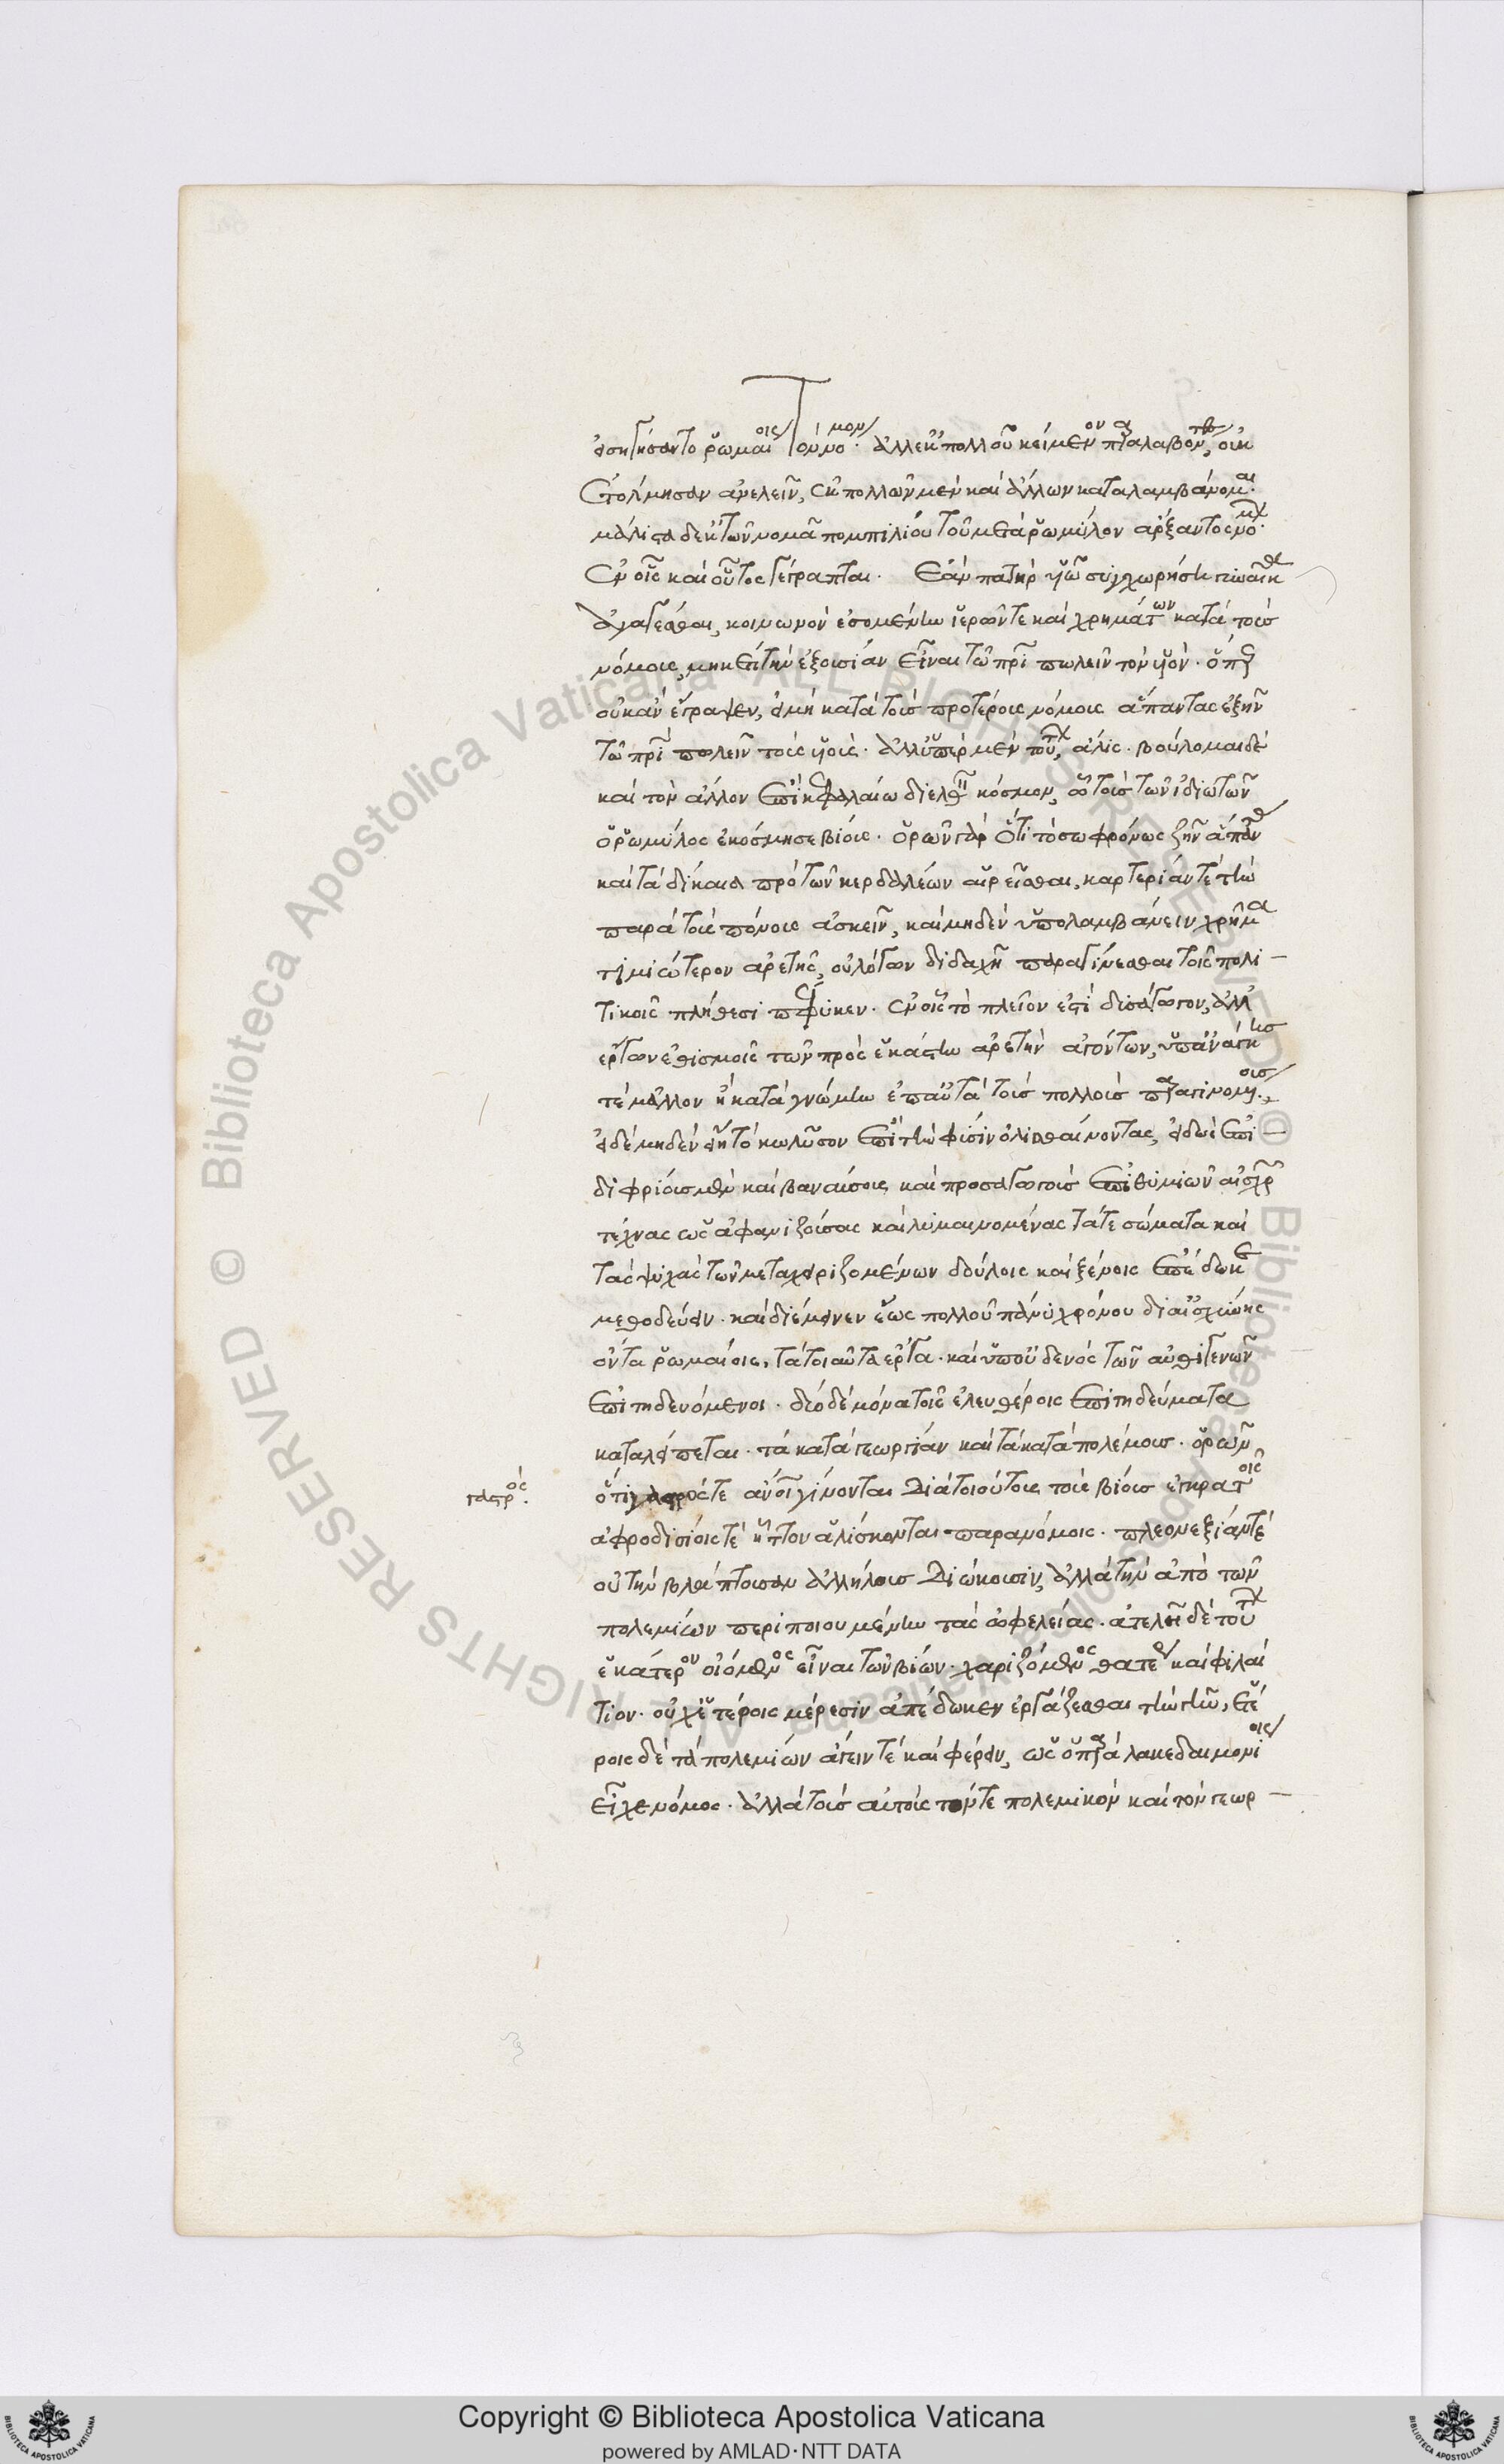 εἰσηγήσαντο ῥωμαίοις τὸν νόμον. ἀλλ' ἐκ πολλοῦ κείμενον παραλαβόντες, οὐκ
ἐτόλμησαν ἀνελεῖν, ἐκ πολλῶν μὲν καὶ ἄλλων καταλαμβάνομαι.
μάλιστα δ' ἐκ τῶν νομᾶ πομπιλίου τοῦ μετὰ ῥωμύλον ἄρξαντος νόμων.
ἐν οἷς καὶ οὗτος γέγραπται. ἐὰν πατὴρ υἱῷ συγχωρήσῃ γυναῖκα
ἀγαγέσθαι, κοινωνὸν ἐσομένην ἱερῶν τε καὶ χρημάτων κατὰ τοὺς
νόμους, μηκέτι τὴν ἐξουσίαν εἶναι τῷ πατρὶ πωλεῖν τὸν υἱόν. ὅπερ
οὐκ ἂν ἔγραψεν, εἰ μὴ κατὰ τοὺς προτέρους νόμους ἅπαντας ἐξῆν
τῷ πατρὶ πωλεῖν τοὺς υἱούς. ἀλλ' ὑπὲρ μὲν τούτων, ἅλις. βούλομαι δὲ
καὶ τὸν ἄλλον ἐπὶ κεφαλαίω διελθεῖν κόσμον, ᾧ τοὺς τῶν ἰδιωτῶν
ὁ ῥωμύλος ἐκόσμησε βίους. ὁρῶν γὰρ ὅτι τὸ σωφρόνως ζῆν ἅπαντας
καὶ τὰ δίκαια πρὸ τῶν κερδαλέων αἱρεῖσθαι, καρτερίαν τε τὴν
παρὰ τοὺς πόνους ἀσκεῖν, καὶ μηδὲν ὑπολαμβάνειν χρῆμα
τιμιώτερον ἀρετῆς, οὐ λόγων διδαχῇ παραγίνεσθαι τοῖς πολι-
τικοῖς πλήθεσι πέφυκεν. ἐν οἷς τὸ πλεῖον ἐστὶ δυσάγωγον, ἀλλ'
ἔργων ἐθισμοῖς τῶν πρὸς ἑκάστην ἀρετὴν ἀγόντων, ὑπ' ἀνάγκης
τὲ μᾶλλον ἢ κατὰ γνώμην ἐπ' αὐτὰ τοὺς πολλοὺς παραγινομένους,
εἰ δὲ μηδὲν εἴη τὸ κωλῦσον ἐπὶ τὴν φύσιν ὀλισθαίνοντας, εἰδὼς ἐπι-
διφρίους μὲν καὶ βαναύσους καὶ προσαγωγοὺς ἐπιθυμιῶν αἰσχρῶν
τέχνας ὡς ἀφανιζούσας καὶ λυμαινομένας τά τε σώματα καὶ
τὰς ψυχὰς τῶν μεταχειριζομένων δούλοις καὶ ξένοις ἐπέδωκε
μεθοδεύειν. καὶ διέμεινεν ἕως πολλοῦ πάνυ χρόνου δι' αἰσχύνης
ὄντα ῥωμαίοις, τὰ τοιαῦτα ἔργα. καὶ ὑπ' οὐδενὸς τῶν αὐθιγενῶν
ἐπιτηδευόμενοι. δύο δὲ μόνα τοῖς ἐλευθέροις ἐπιτηδεύματα
καταλείπεται. τὰ κατὰ γεωργίαν καὶ τὰ κατὰ πολέμους. ὁρῶν
γαστρός.
ὅτι τε ἄνθρωποι γίνονται διὰ τούτους τοὺς βίους ἐγκρατεῖς
ἀφροδισίοις τὲ ἧττον ἁλίσκονται παρανόμοις. πλεονεξίαν τὲ
οὐ τὴν βλάπτουσαν ἀλλήλους διώκουσιν, ἀλλὰ τὴν ἀπὸ τῶν
πολεμίων περιποιουμένην τὰς ὠφελείας. ἀτελῆ δὲ τούτων
ἑκάτερον οἰόμενος εἶναι τῶν βίων. χωριζόμενος θατέρου καὶ φιλαί
τιον. οὐχ ἑτέροις μέρεσιν ἀπέδωκεν ἐργάζεσθαι τὴν γῆν, ἑτέ
ροις δὲ τὰ πολεμίων ἄγειν τὲ καὶ φέρειν, ὡς ὁ παρὰ λακεδαιμονίοις
εἶχε νόμος. ἀλλὰ τοὺς αὐτοὺς τόν τε πολεμικὸν καὶ τὸν γεωρ-